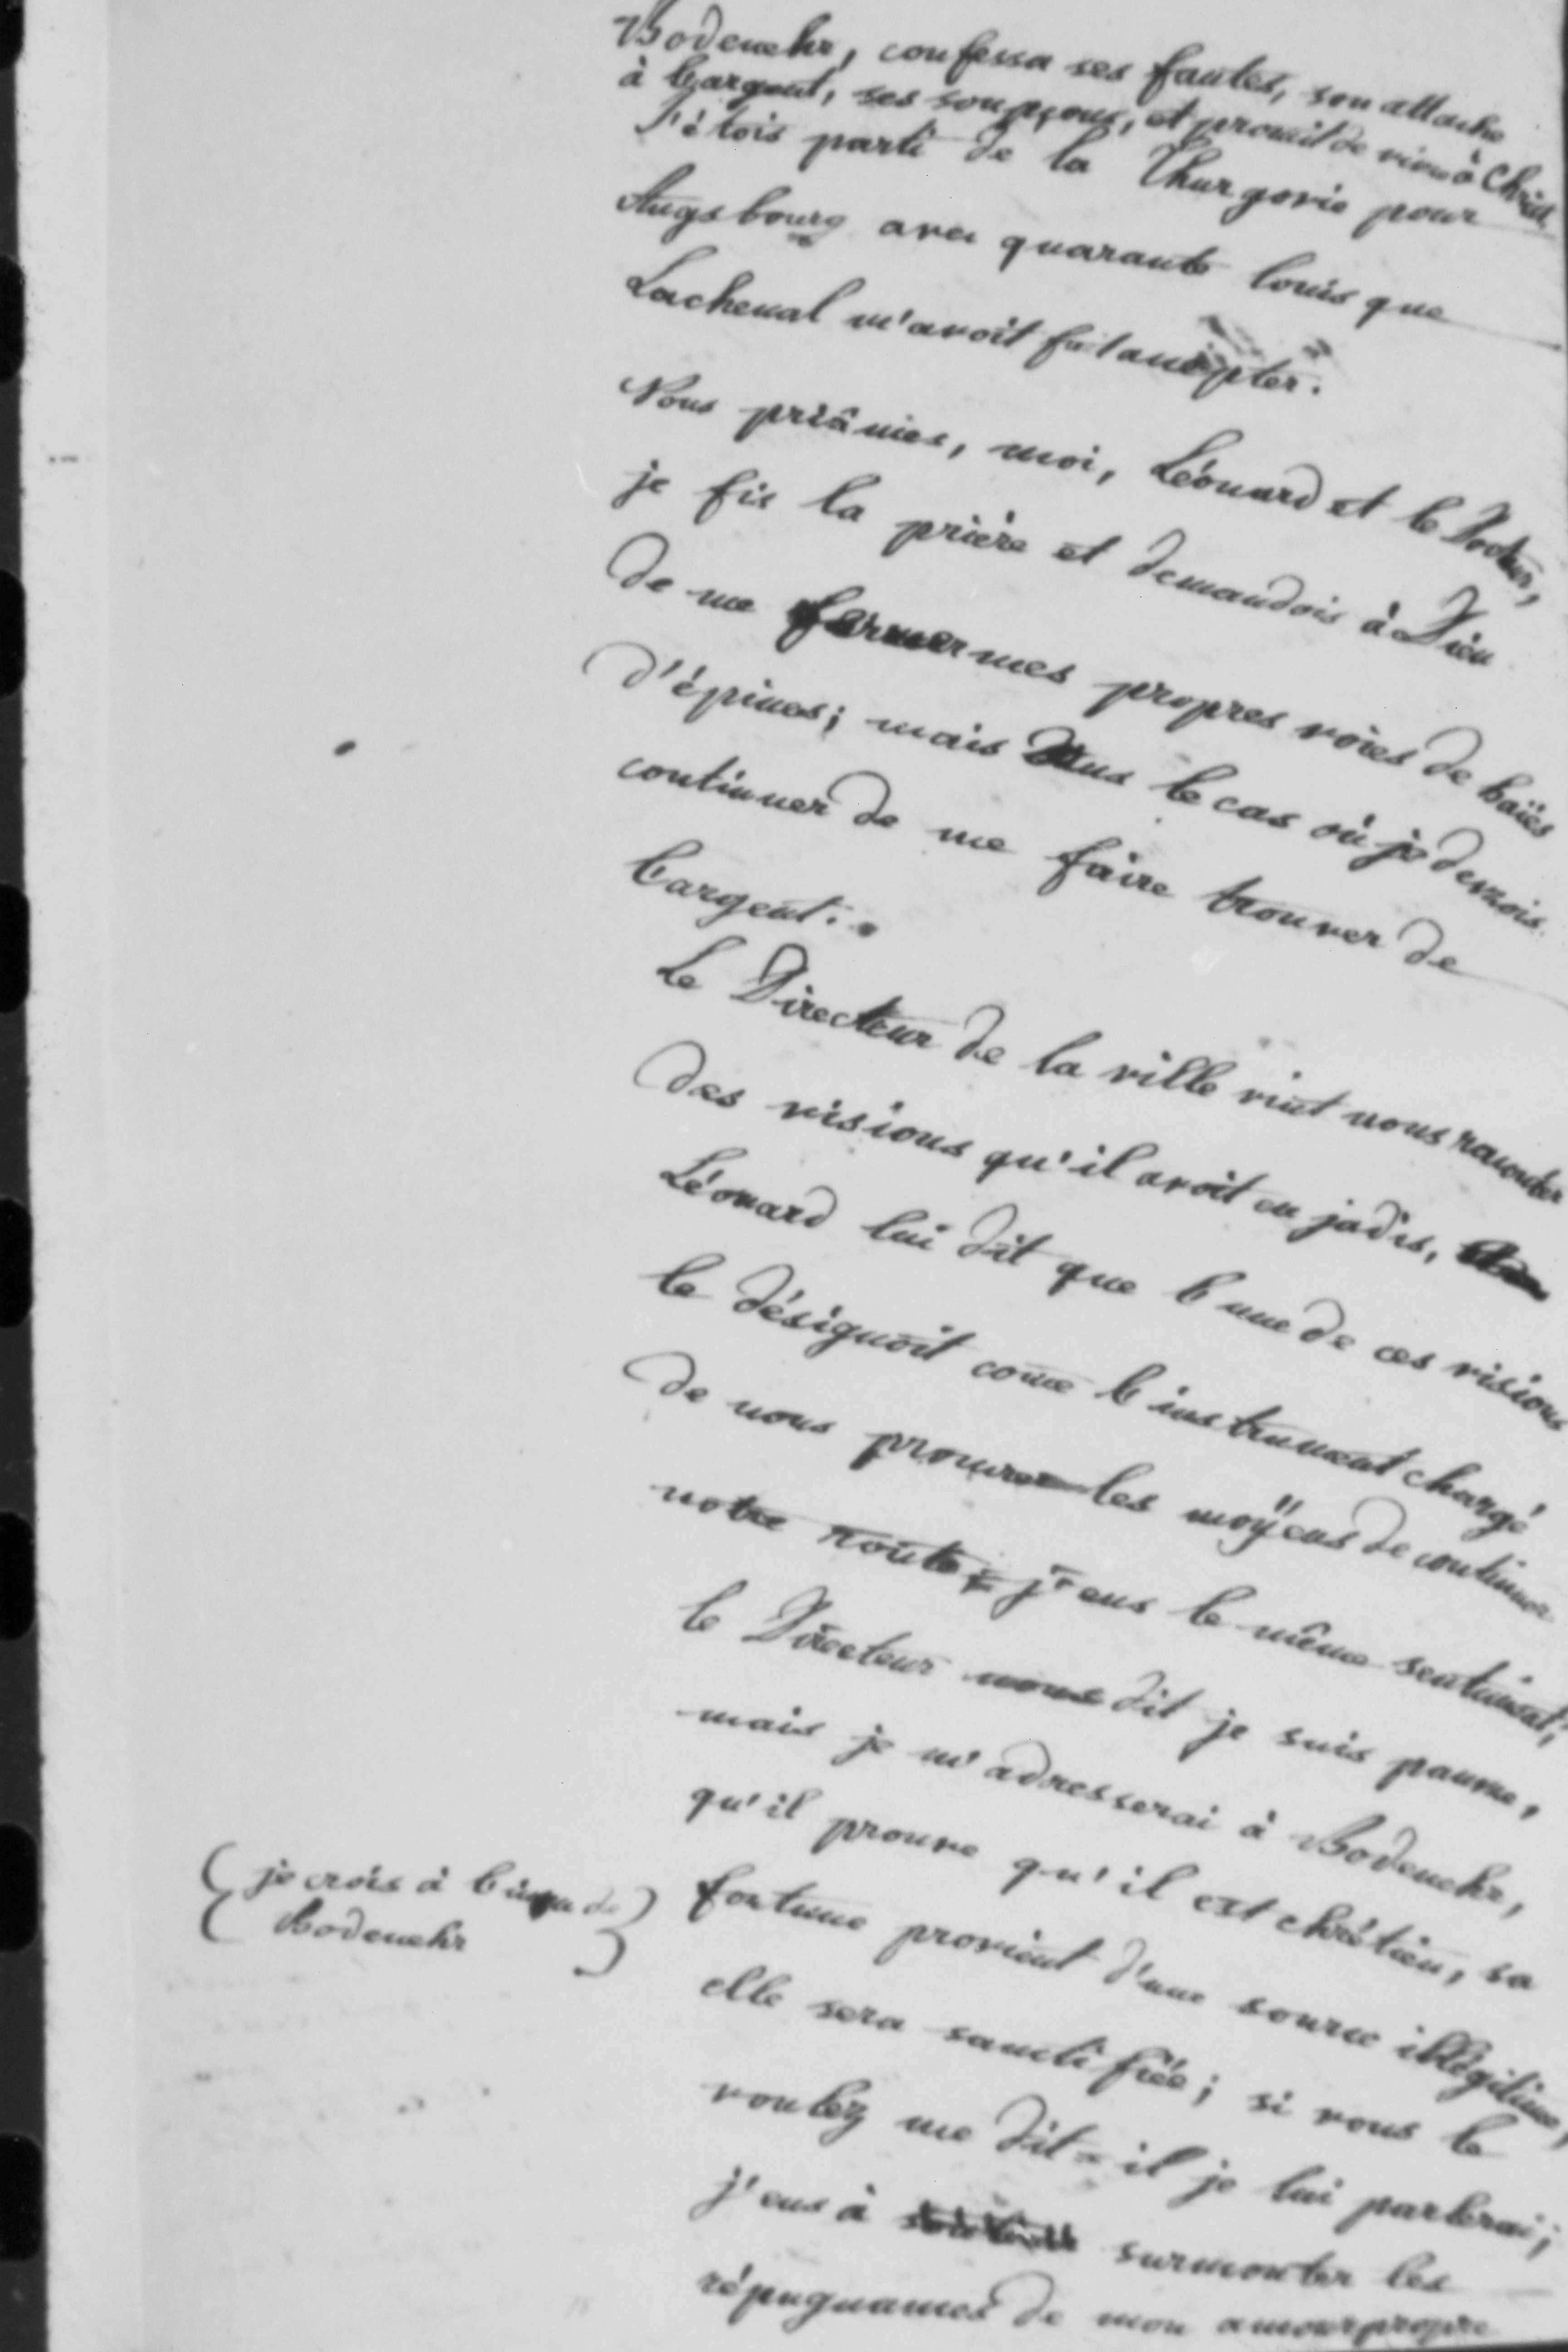 Bodenehr, confessa ses fautes, son attache
à l'argent, ses soupçons, et promit de vivre à Christ.
J'étois parti de la Thurgovie pour
Augsbourg avec quarante louis que
Lachenal m'avoit fait accepter.
Nous priâmes, moi, Léonard et le Docteur,
je fis la prière et demandois à Dieu
de me fermer mes propres voies de haïes
d'épines; mais dans le cas où je devrois
continuer de me faire trouver de
l'argent.
Le Directeur de la ville vint nous raconter
des visions qu'il avoit eu jadis,
Léonard lui dit que l'une de ces visions
le désignoit come l'instrument chargé
de nous procurer les moÿens de continuer
notre route; j'eus le même sentiment;
le Directeur nous dit je suis pauvre,
mais je m'adresserai à Bodenehr,
qu'il prouve qu'il est chrétien, sa
fortune provient d'une source illégitime,
elle sera sanctifiée; si vous le
voulez me dit-il je lui parlerai;
j'eus à surmonter les
répugnances de mon amour propre
(je crois à l'insçu de
Bodenehr)